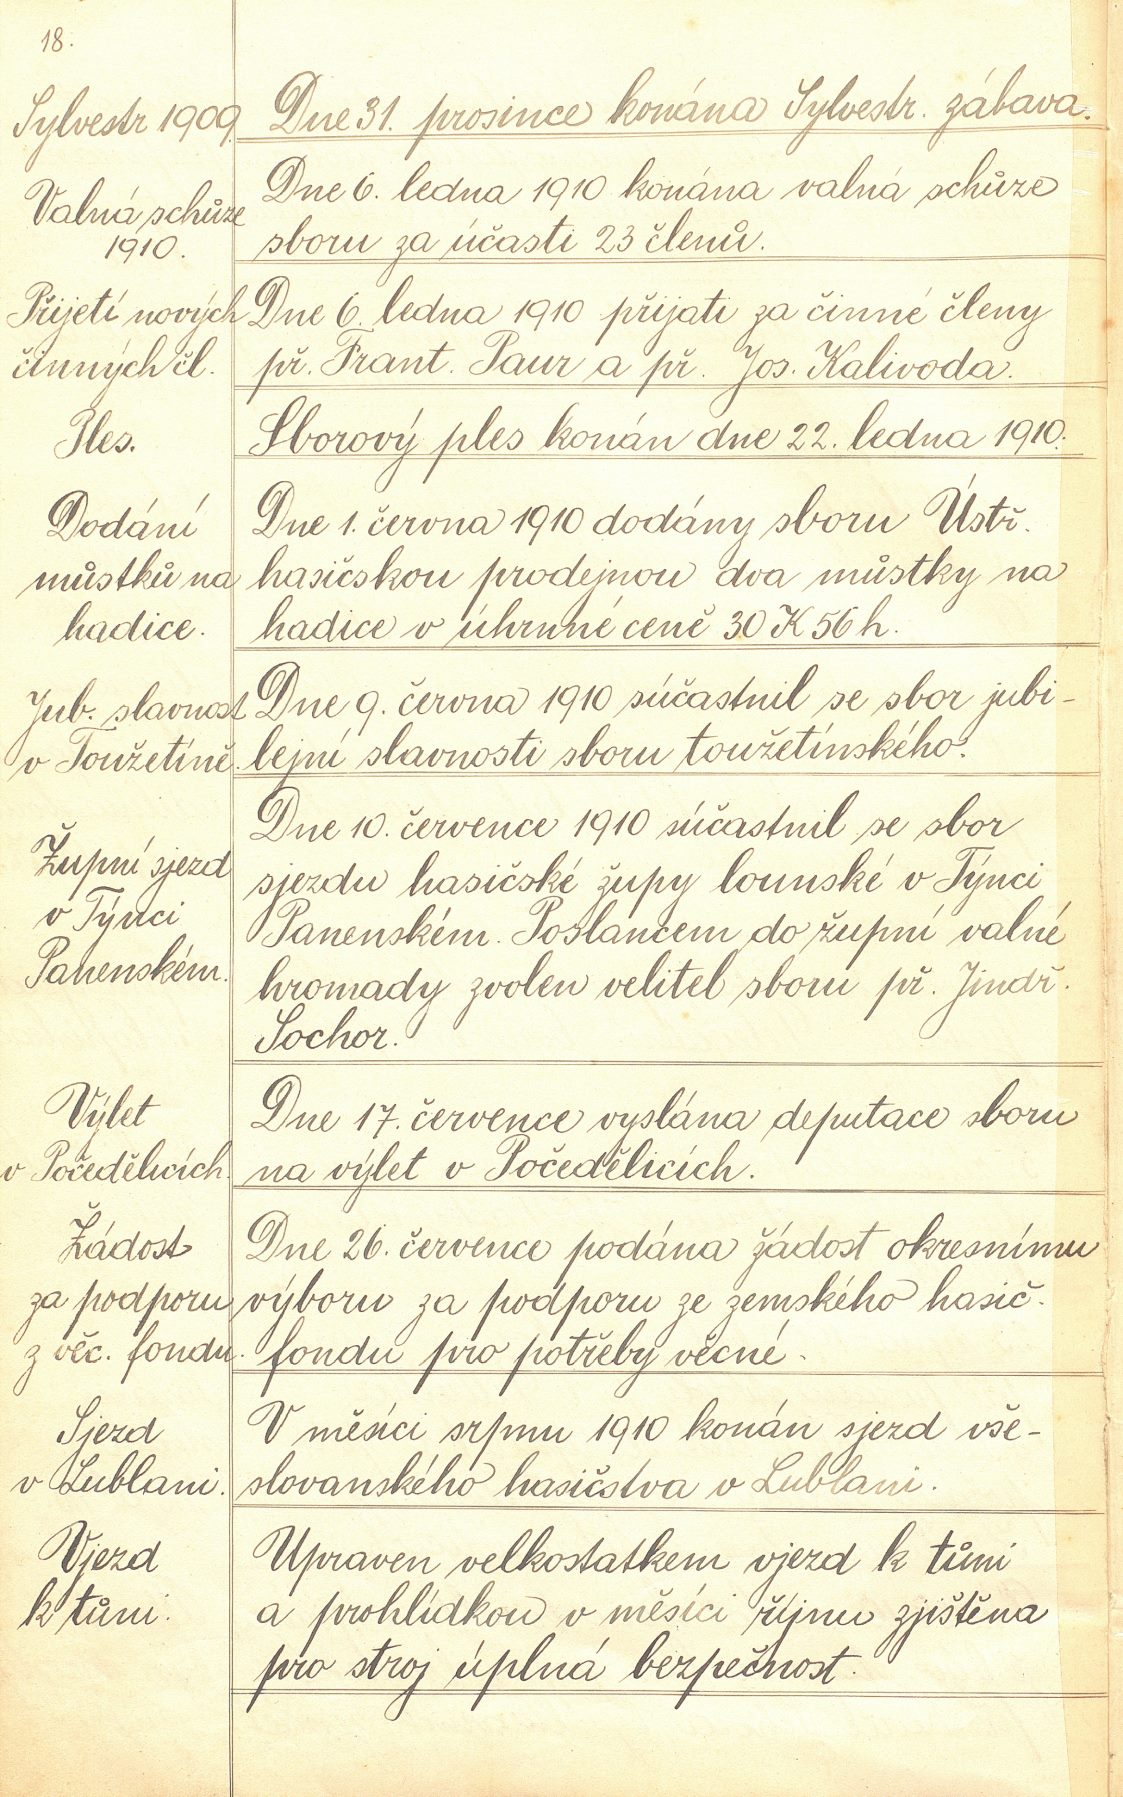 18.
Sylvestr 1909.
Dne 31. prosince konána Sylvestr. zábava.
Valná schůze
1910.
Dne 6. ledna 1910 konána valná schůze
sboru za účasti 23 členů.
Přijetí nových
činných čl.
Dne 6. ledna 1910 přijati za činné členy
př. Frant. Paur a př. Jos. Kalivoda.
Ples.
Sborový ples konán dne 22. ledna 1910.
Dodání
můstků na
hadice.
Dne 1. června 1910 dodány sboru Ústř.
hasičskou prodejnou dva můstky na
hadice v úhrnné ceně 30 K 56 h.
Jub. slavnost
v Toužetíně.
Dne 9. června 1910 súčastnil se sbor jubi-
lejní slavnosti sboru toužetínského.
Župní sjezd
v Týnci
Panenském.
Dne 10. července 1910 súčastnil se sbor
sjezdu hasičské župy lounské v Týnci
Panenském. Poslancem do župní valné
hromady zvolen velitel sboru př. Jindř.
Sochor.
Výlet
v Počedělicích.
Dne 17. července vyslána deputace sboru
na výlet v Počedělicích.
Žádost
za podporu
z věc. fondu.
Dne 26. července podána žádost okresnímu
výboru za podporu ze zemského hasič.
fondu pro potřeby věcné.
Sjezd
v Lublani.
V měsíci srpnu 1910 konán sjezd vše-
slovanského hasičstva v Lublani.
Vjezd
k tůni.
Upraven velkostatkem vjezd k tůni
a prohlídkou v měsíci říjnu zjištěna
pro stroj úplná bezpečnost.